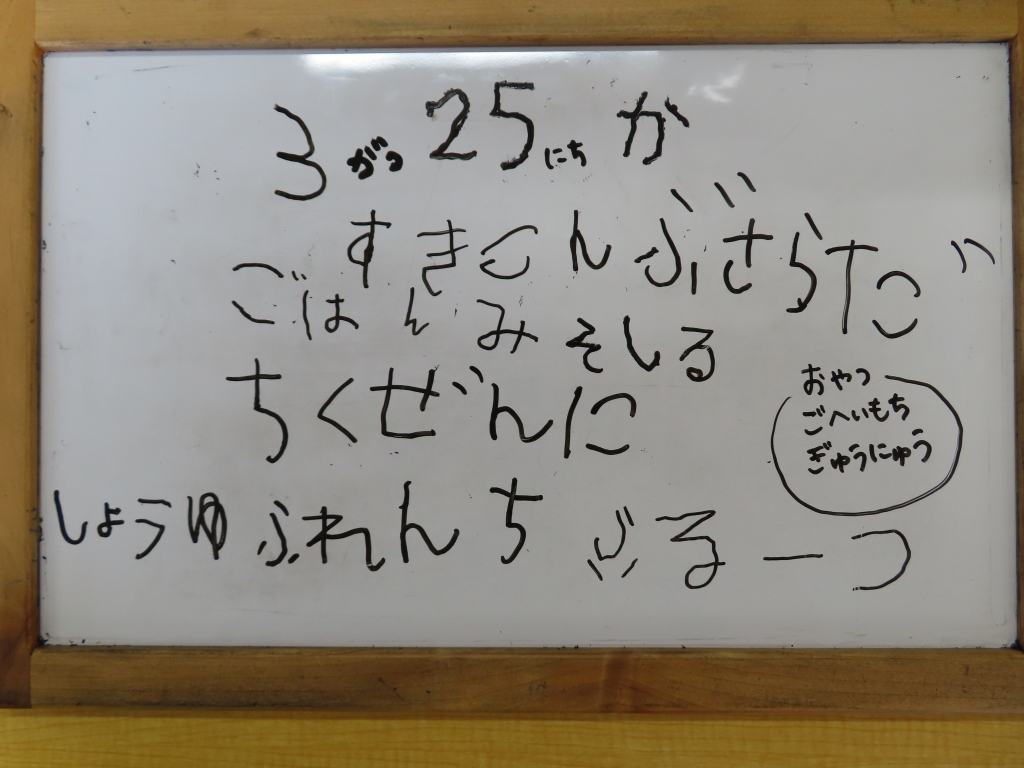 3がつ25にち か
すきこんぶさらだ
ごはん みそしる
ちくぜんに
おやつ
ごへいもち
ぎゅうにゅう
しょうゆふれんち ふるーつ